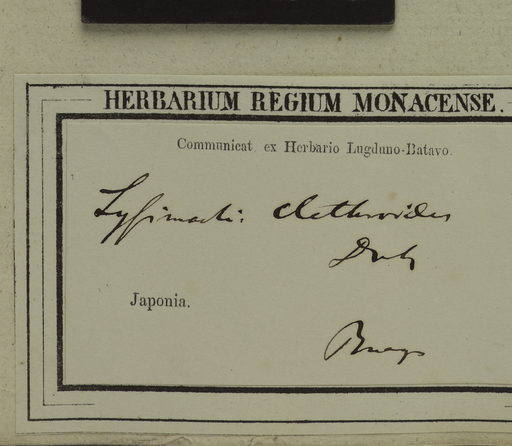 HERBARIUM REGIUM MONACENSE.
Communicat ex Herbario Lugduno-Batavo.
Lysimachi: clethroides
Dub
Japonia.